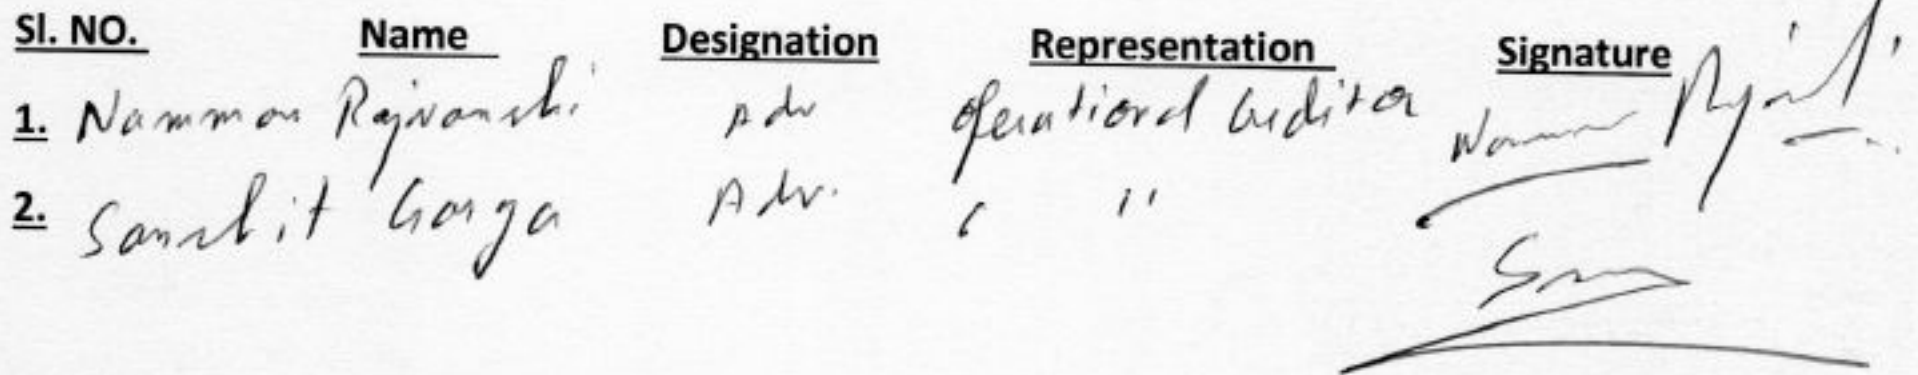 Sl. NO. Name Designation Representation Signature
1. Namman Rajvanshi Adv Operational Creditor
2. Sanchit Garga Adv. " "